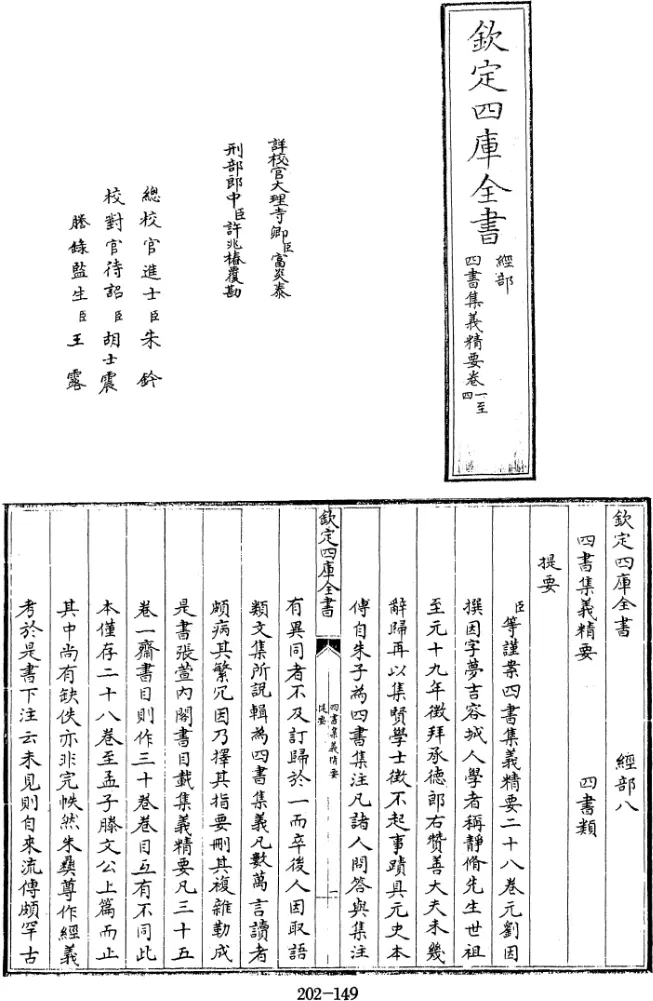 欽定四庫全書
經部
四書集義精要卷一至四
詳校官大理寺卿臣富炎泰
刑部郎中臣許兆椿覆勘
總校官進士臣朱鈐
校對官待詔臣胡士震
謄錄監生臣王露
欽定四庫全書　經部八
四書集義精要　四書類
提要
臣等謹案四書集義精要二十八卷元劉因
撰因字夢吉容城人學者稱靜脩先生世祖
至元十九年徵拜承德郎右贊善大夫未幾
辭歸再以集賢學士徵不起事蹟具元史本
傳自朱子為四書集注凡諸人問答與集注
欽定四庫全書
四書集義精要
提要
一
有異同者不及訂歸於一而卒後人因取語
類文集所說輯為四書集義凡數萬言讀者
頗病其繁冗因乃擇其指要刪其複雜勒成
是書張萱內閣書目載集義精要凡三十五
卷一齋書目則作三十卷卷目互有不同此
本僅存二十八卷至孟子滕文公上篇而止
其中尚有缺佚亦非完帙然朱彝尊作經義
考於是書下注云未見則自來流傳頗罕古
202-149